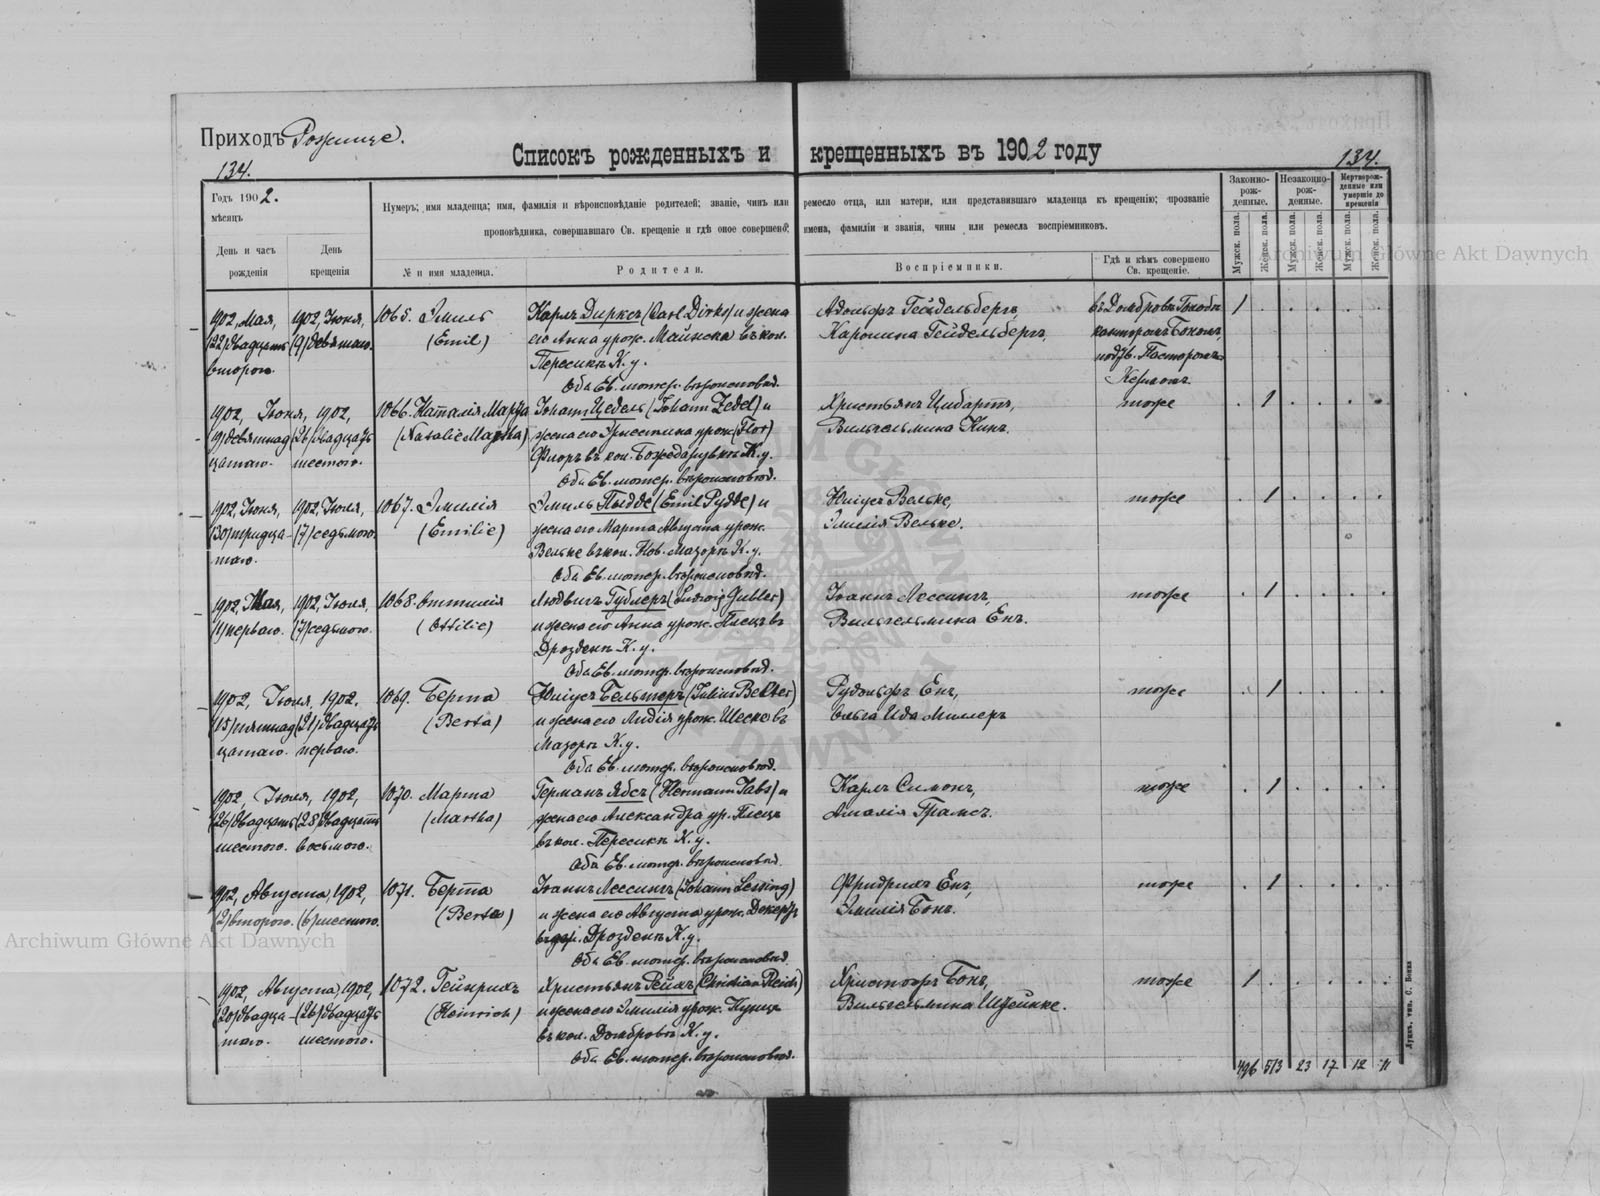 Приходъ Рожище.
134.
Списокъ рожденныхъ и крещенныхъ въ 1902 году
134.
Годъ 1902.
мѣсяцъ
День и часъ рожденія
День крещенія
Нумеръ; имя младенца; имя, фамилія и вѣроисповѣданіе родителей; званіе, чинъ или ремесло отца, или матери, или представившаго младенца къ крещенію; прозваніе
проповѣдника, совершавшаго Св. крещеніе и гдѣ оное совершено; имена, фамиліи и званія, чины или ремесла воспріемниковъ.
№ и имя младенца.
Родители.
Воспріемники.
Гдѣ и кѣмъ совершено Св. крещеніе.
Законно-рож-денные.
Незаконно-рож-денные.
Мертворож-денные или умершіе до крещенія
Мужск. пола.
Женск. пола.
Мужск. пола.
Женск. пола.
Мужск. пола.
Женск. пола.
1902, Мая,
(22) двадцать
второго.
1902, Іюня,
(9) девятаго.
1065. Эмиль
(Emil)
Карлъ Дирксъ (Carl Dirks) и жена
его Анна урож. Майнска въ кол.
Пересикъ К. у.
Оба Ев. лютер. вѣроисповѣд.
Адольфъ Гейдельбергъ,
Каролина Гейдельбергъ.
въ Домбровъ
канторомъ Бономъ,
подтв. Пасторомъ
1
1902, Іюня,
(19) девятнад
цатаго.
1902,
(26) двадцать
шестого.
1066. Наталія Марта
(Natalie Martha)
Іоганъ Цедель (Johann Zedel) и
жена его Эрнестина урож. (Flor)
Флоръ въ кол. Божедаровкѣ К. у.
Оба Ев. лютер. вѣроисповѣд.
Христьянъ Цибартъ,
Вильгельмина Кинъ.
тоже
1
1902, Іюня,
(30) тридца-
таго.
1902, Іюля,
(7) седьмого.
1067. Эмилія
(Emilie)
Эмиль Пыдде (Emil Pydde) и
жена его Марта Августа урож.
Вельке въ кол. Нов. Мазоръ К. у.
Оба Ев. лютер. вѣроисповѣд.
Юліусъ Вельке,
Эмилія Вельке.
тоже
1
1902, Мая,
(1) перваго.
1902, Іюля,
(7) седьмого.
1068. Оттилія
(Ottilie)
Людвигъ Гублеръ (Ludwig Gubler)
и жена его Анна урож. Плецъ въ
Дрозденъ К. у.
Оба Ев. лютер. вѣроисповѣд.
Іоганъ Лессингъ,
Вильгельмина Енъ.
тоже
1
1902, Іюля,
(15) пятнад
цатаго.
1902.
(21) двадцать
перваго.
1069. Берта
(Berta)
Юліусъ Бельтеръ (Julius Belter)
и жена его Лидія урож. Шеске въ
Мазоръ К. у.
Оба Ев. лютер. вѣроисповѣд.
Рудольфъ Енъ,
Ольга Ида Миллеръ
тоже
1
1902, Іюля,
(26) двадцать
шестого.
1902,
(28) двадцать
восьмого.
1070. Марта
(Martha)
Германъ Ябсъ (Hermann Jabs) и
жена его Александра ур. Плецъ
въ кол. Пересикъ К. у.
Оба Ев. лютер. вѣроисповѣд.
Карлъ Симонъ,
Амалія Грамсъ.
тоже
1
1902, Августа,
(2) второго.
1902,
(6) шестого.
1071. Берта
(Berta)
Іоганъ Лессингъ (Johann Lessing)
и жена его Августа урож. Декертъ
Дрозденъ К. у.
Оба Ев. лютер. вѣроисповѣд.
Фридрихъ Енъ,
Эмилія Бонъ.
тоже
1
1902, Августа,
(20) двадца-
таго.
1902,
(26) двадцать
шестого.
1072. Гейнрихъ
(Heinrich)
Христьянъ Рейхъ (Christian Reich)
и жена его Эмилія урож. Куницъ
въ кол. Домбровъ К. у.
Оба Ев. лютер. вѣроисповѣд.
Христофъ Бонъ,
Вильгельмина Штейнке.
тоже
1
496 513 23 17 12 11
Луцкъ, тип. С. Бокка
Archiwum Główne Akt Dawnych
Archiwum Główne Akt Dawnych